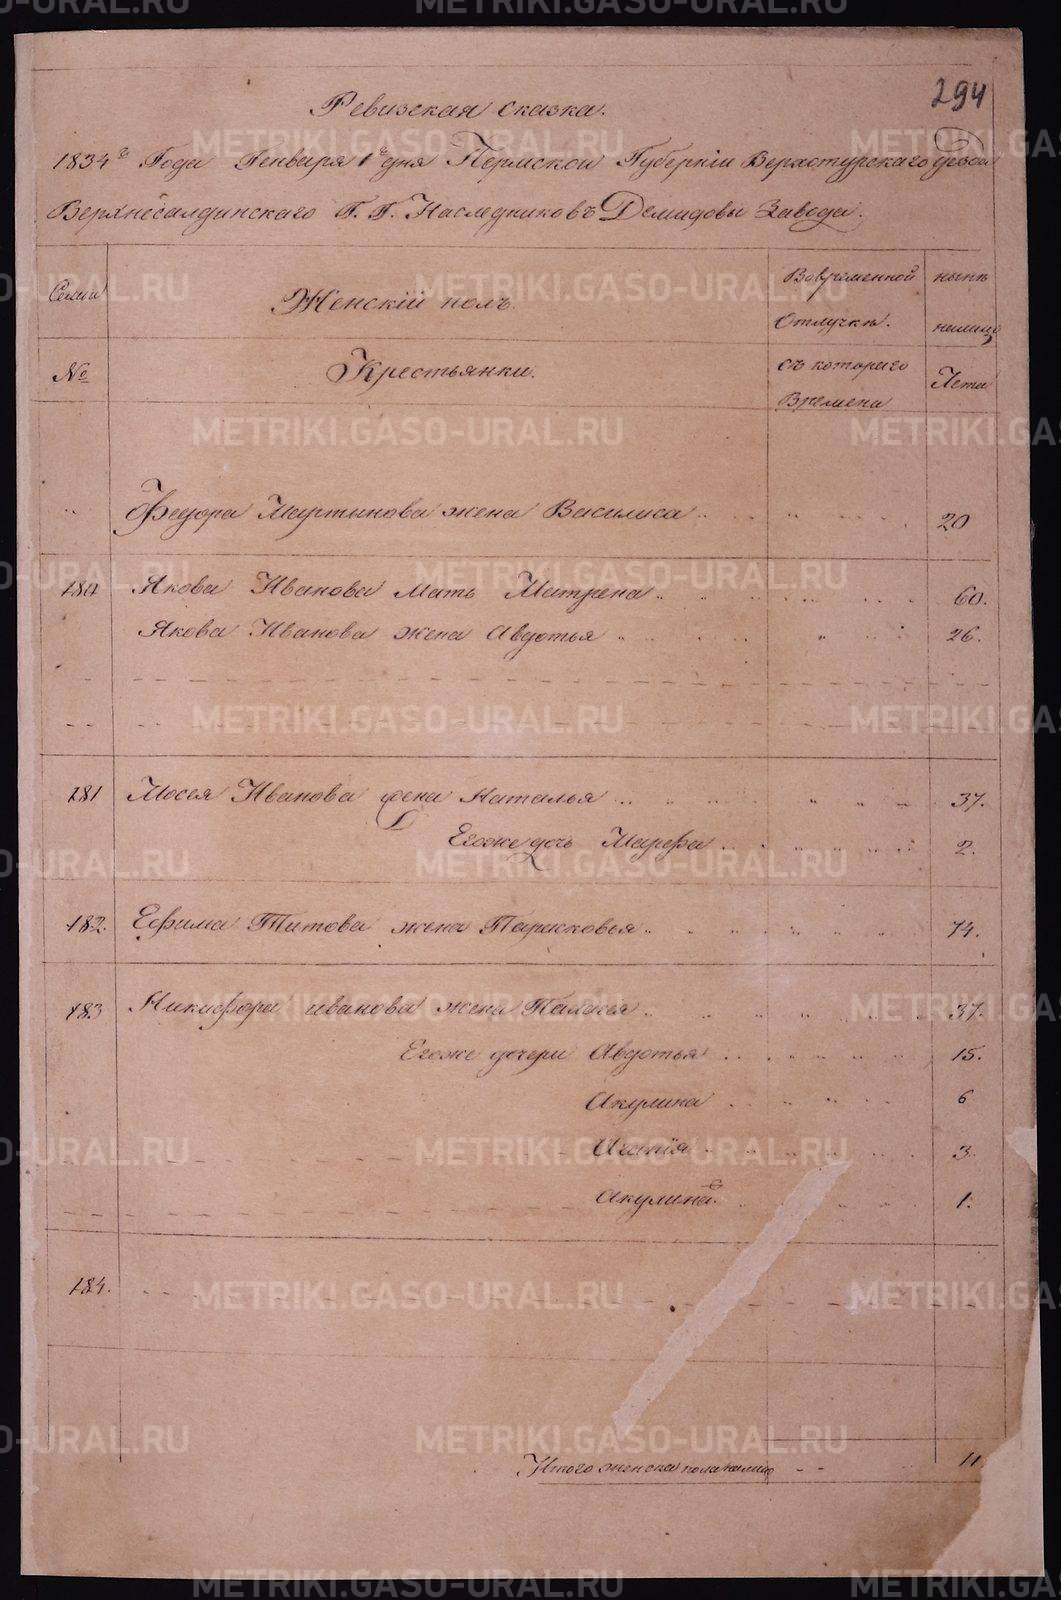 294
Ревизская сказка.
1834го Года Генваря 1го дня Пермской Губернiи Верхотурского уезда
Верхнесалдинского Г. Г. Наследниковъ Демидовы Завода.
Семьи
Женскiй полъ.
Во временной
отлучке.
ныне
налицо
№
Крестьянки.
съ которого
времени
Лета
Федора Мартинова жена Василиса 20
180 Якова Иванова мать Матрена 60.
Якова Иванова жена Авдотья 26.
181 Мосея Иванова жена Наталья 37.
Егоже дочь Марефа 2.
182. Ефима Титова жена Парасковья 74.
183 Никифора иванова жена Палагея 37.
Егоже дочери Авдотья 15.
Акулина 6
3.
Акулина 1.
184.
Итого женска пола налицо 11
METRIKI.GASO-URAL.RU